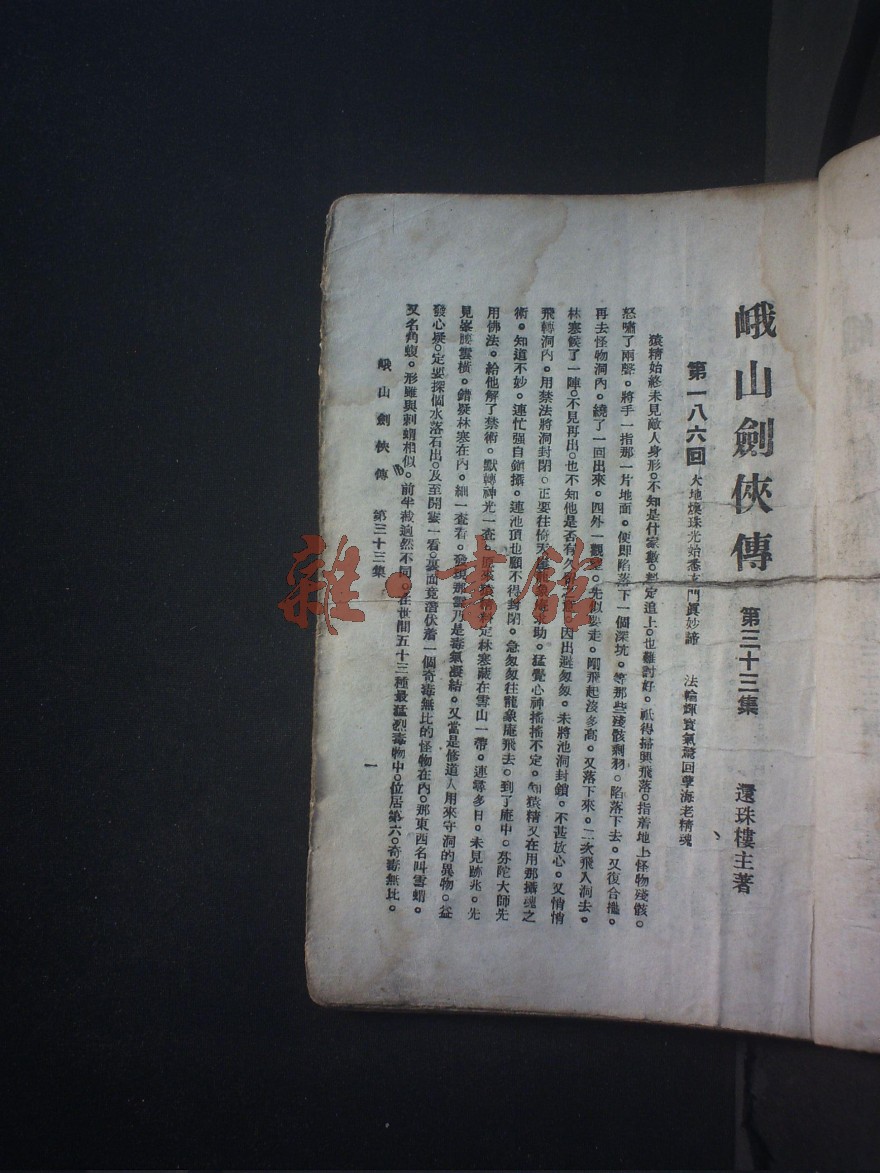 峨山劍俠傳 第三十三集 還珠樓主著
第一八六回 大地煥珠光始悉玄門眞妙諦 法輪輝寶氣驚回孽海老精魂
猿精始終未見敵人身形。不知是什家數。料定追上。也難討好。祇得掃興飛落。指着地上怪物殘骸。
怒嘯了兩聲。將手一指那一片地面。便卽陷落下一個深坑。等那些殘骸剩羽。陷落下去。又復合攏。
再去怪物洞內。繞了一回出來。四外一觀望。先似要走。剛飛起沒多高。又落下來。二次飛入洞去。
林寒候了一陣。不見再出。也不知他是否有久 因出避匆匆。未將池洞封鎖。不甚放心。又悄悄
飛轉洞內。用禁法將洞封閉。正要往倚天 求助。猛覺心神搖搖不定。知猿精又在用那攝魂之
術。知道不妙。連忙強自鎮攝。連池頂也顧不得封閉。急匆匆往龍象庵飛去。到了庵中。芬陀大師先
用佛法。給他解了禁術。默轉神光一查。 定林寒藏在雪山一帶。連尋多日。未見跡兆。先
見峯腰雲橫。錯疑林寒在內。細一查看。發現那雲乃是毒氣凝結。又當是修道人用來守洞的異物。益
發心疑。定要探個水落石出。及至開 一看。裏面竟潛伏着一個奇毒無比的怪物在內。那東西名叫雪蝟。
又名角蝮。形雖與刺蝟相似。前半截逈然不同。在世間五十三種最猛烈毒物中。位居第六。奇毒無比。
峨山劍俠傳 第三十三集 一
雜·書館